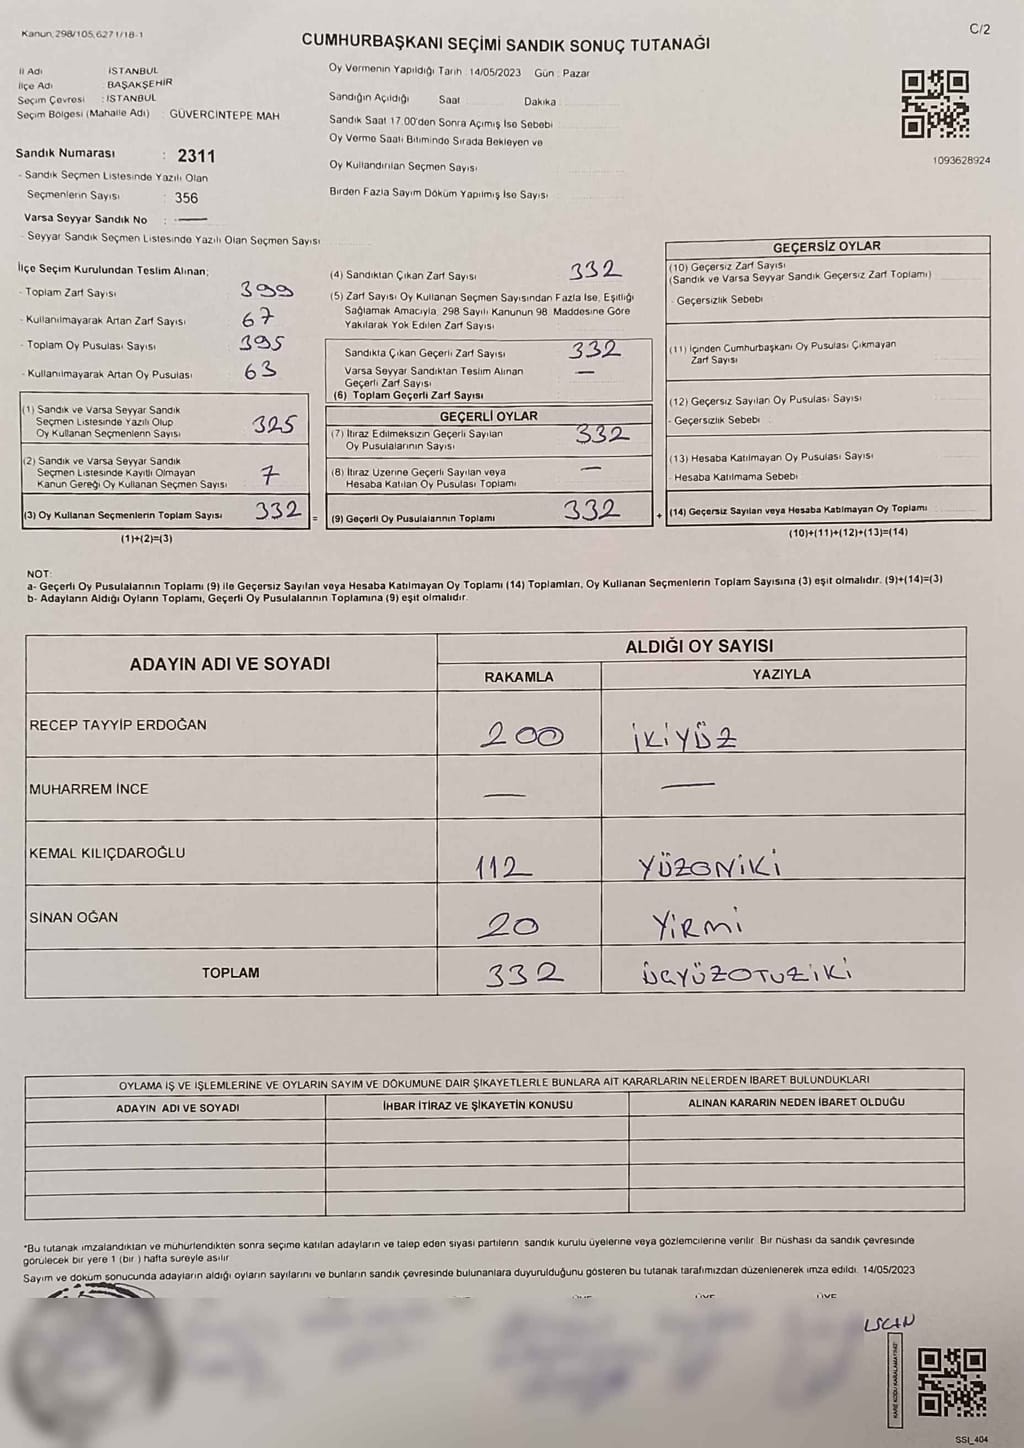 Kanun, 298/105,6271/18-1
C/2
CUMHURBAŞKANI SEÇİMİ SANDIK SONUÇ TUTANAĞI
İl Adı İSTANBUL
İlçe Adı BAŞAKŞEHİR
Seçim Çevresi : İSTANBUL
Seçim Bölgesi (Mahalle Adı) : GÜVERCİNTEPE MAH
Sandık Numarası : 2311
- Sandık Seçmen Listesinde Yazılı Olan
Seçmenlerin Sayısı : 356
Varsa Seyyar Sandık No : —
- Seyyar Sandık Seçmen Listesinde Yazılı Olan Seçmen Sayısı
Oy Vermenin Yapıldığı Tarih : 14/05/2023 Gün : Pazar
Sandığın Açıldığı Saat Dakika
Sandık Saat 17.00'den Sonra Açımış İse Sebebi
Oy Verme Saati Bitiminde Sırada Bekleyen ve
Oy Kullandırılan Seçmen Sayısı
Birden Fazla Sayım Döküm Yapılmış İse Sayısı
1093628924
İlçe Seçim Kurulundan Teslim Alınan;
- Toplam Zarf Sayısı 399
- Kullanılmayarak Artan Zarf Sayısı 67
- Toplam Oy Pusulası Sayısı 395
- Kullanılmayarak Artan Oy Pusulası 63
(1) Sandık ve Varsa Seyyar Sandık
Seçmen Listesinde Yazılı Olup
Oy Kullanan Seçmenlerin Sayısı 325
(2) Sandık ve Varsa Seyyar Sandık
Seçmen Listesinde Kayıtlı Olmayan
Kanun Gereği Oy Kullanan Seçmen Sayısı 7
(3) Oy Kullanan Seçmenlerin Toplam Sayısı 332 =
(1)+(2)=(3)
(4) Sandıktan Çıkan Zarf Sayısı 332
(5) Zarf Sayısı Oy Kullanan Seçmen Sayısından Fazla İse, Eşitliği
Sağlamak Amacıyla, 298 Sayılı Kanunun 98. Maddesine Göre
Yakılarak Yok Edilen Zarf Sayısı
Sandıkta Çıkan Geçerli Zarf Sayısı 332
Varsa Seyyar Sandıktan Teslim Alınan
Geçerli Zarf Sayısı —
(6) Toplam Geçerli Zarf Sayısı
GEÇERLİ OYLAR
(7) İtiraz Edilmeksizin Geçerli Sayılan
Oy Pusulalarının Sayısı 332
(8) İtiraz Üzerine Geçerli Sayılan veya
Hesaba Katılan Oy Pusulası Toplamı —
(9) Geçerli Oy Pusulalarının Toplamı 332 +
GEÇERSİZ OYLAR
(10) Geçersiz Zarf Sayısı
(Sandık ve Varsa Seyyar Sandık Geçersiz Zarf Toplamı)
- Geçersizlik Sebebi
(11) İçinden Cumhurbaşkanı Oy Pusulası Çıkmayan
Zarf Sayısı
(12) Geçersiz Sayılan Oy Pusulası Sayısı
- Geçersizlik Sebebi
(13) Hesaba Katılmayan Oy Pusulası Sayısı
- Hesaba Katılmama Sebebi
(14) Geçersiz Sayılan veya Hesaba Katılmayan Oy Toplamı
(10)+(11)+(12)+(13)=(14)
NOT:
a- Geçerli Oy Pusulalarının Toplamı (9) ile Geçersiz Sayılan veya Hesaba Katılmayan Oy Toplamı (14) Toplamları, Oy Kullanan Seçmenlerin Toplam Sayısına (3) eşit olmalıdır. (9)+(14)=(3)
b- Adayların Aldığı Oyların Toplamı, Geçerli Oy Pusulalarının Toplamına (9) eşit olmalıdır.
ADAYIN ADI VE SOYADI ALDIĞI OY SAYISI
RAKAMLA YAZIYLA
RECEP TAYYİP ERDOĞAN 200 İKİYÜZ
MUHARREM İNCE — —
KEMAL KILIÇDAROĞLU 112 YÜZONİKİ
SİNAN OĞAN 20 YİRMİ
TOPLAM 332 ÜÇYÜZOTUZİKİ
OYLAMA İŞ VE İŞLEMLERİNE VE OYLARIN SAYIM VE DÖKÜMÜNE DAİR ŞİKAYETLERLE BUNLARA AİT KARARLARIN NELERDEN İBARET BULUNDUKLARI
ADAYIN ADI VE SOYADI İHBAR İTİRAZ VE ŞİKAYETİN KONUSU ALINAN KARARIN NEDEN İBARET OLDUĞU
*Bu tutanak imzalandıktan ve mühürlendikten sonra seçime katılan adayların ve talep eden siyasi partilerin sandık kurulu üyelerine veya gözlemcilerine verilir. Bir nüshası da sandık çevresinde
görülecek bir yere 1 (bir) hafta süreyle asılır
Sayım ve döküm sonucunda adayların aldığı oyların sayılarını ve bunların sandık çevresinde bulunanlara duyurulduğunu gösteren bu tutanak tarafımızdan düzenlenerek imza edildi. 14/05/2023
KARE KODU KARALAMAYINIZ
SSI_404